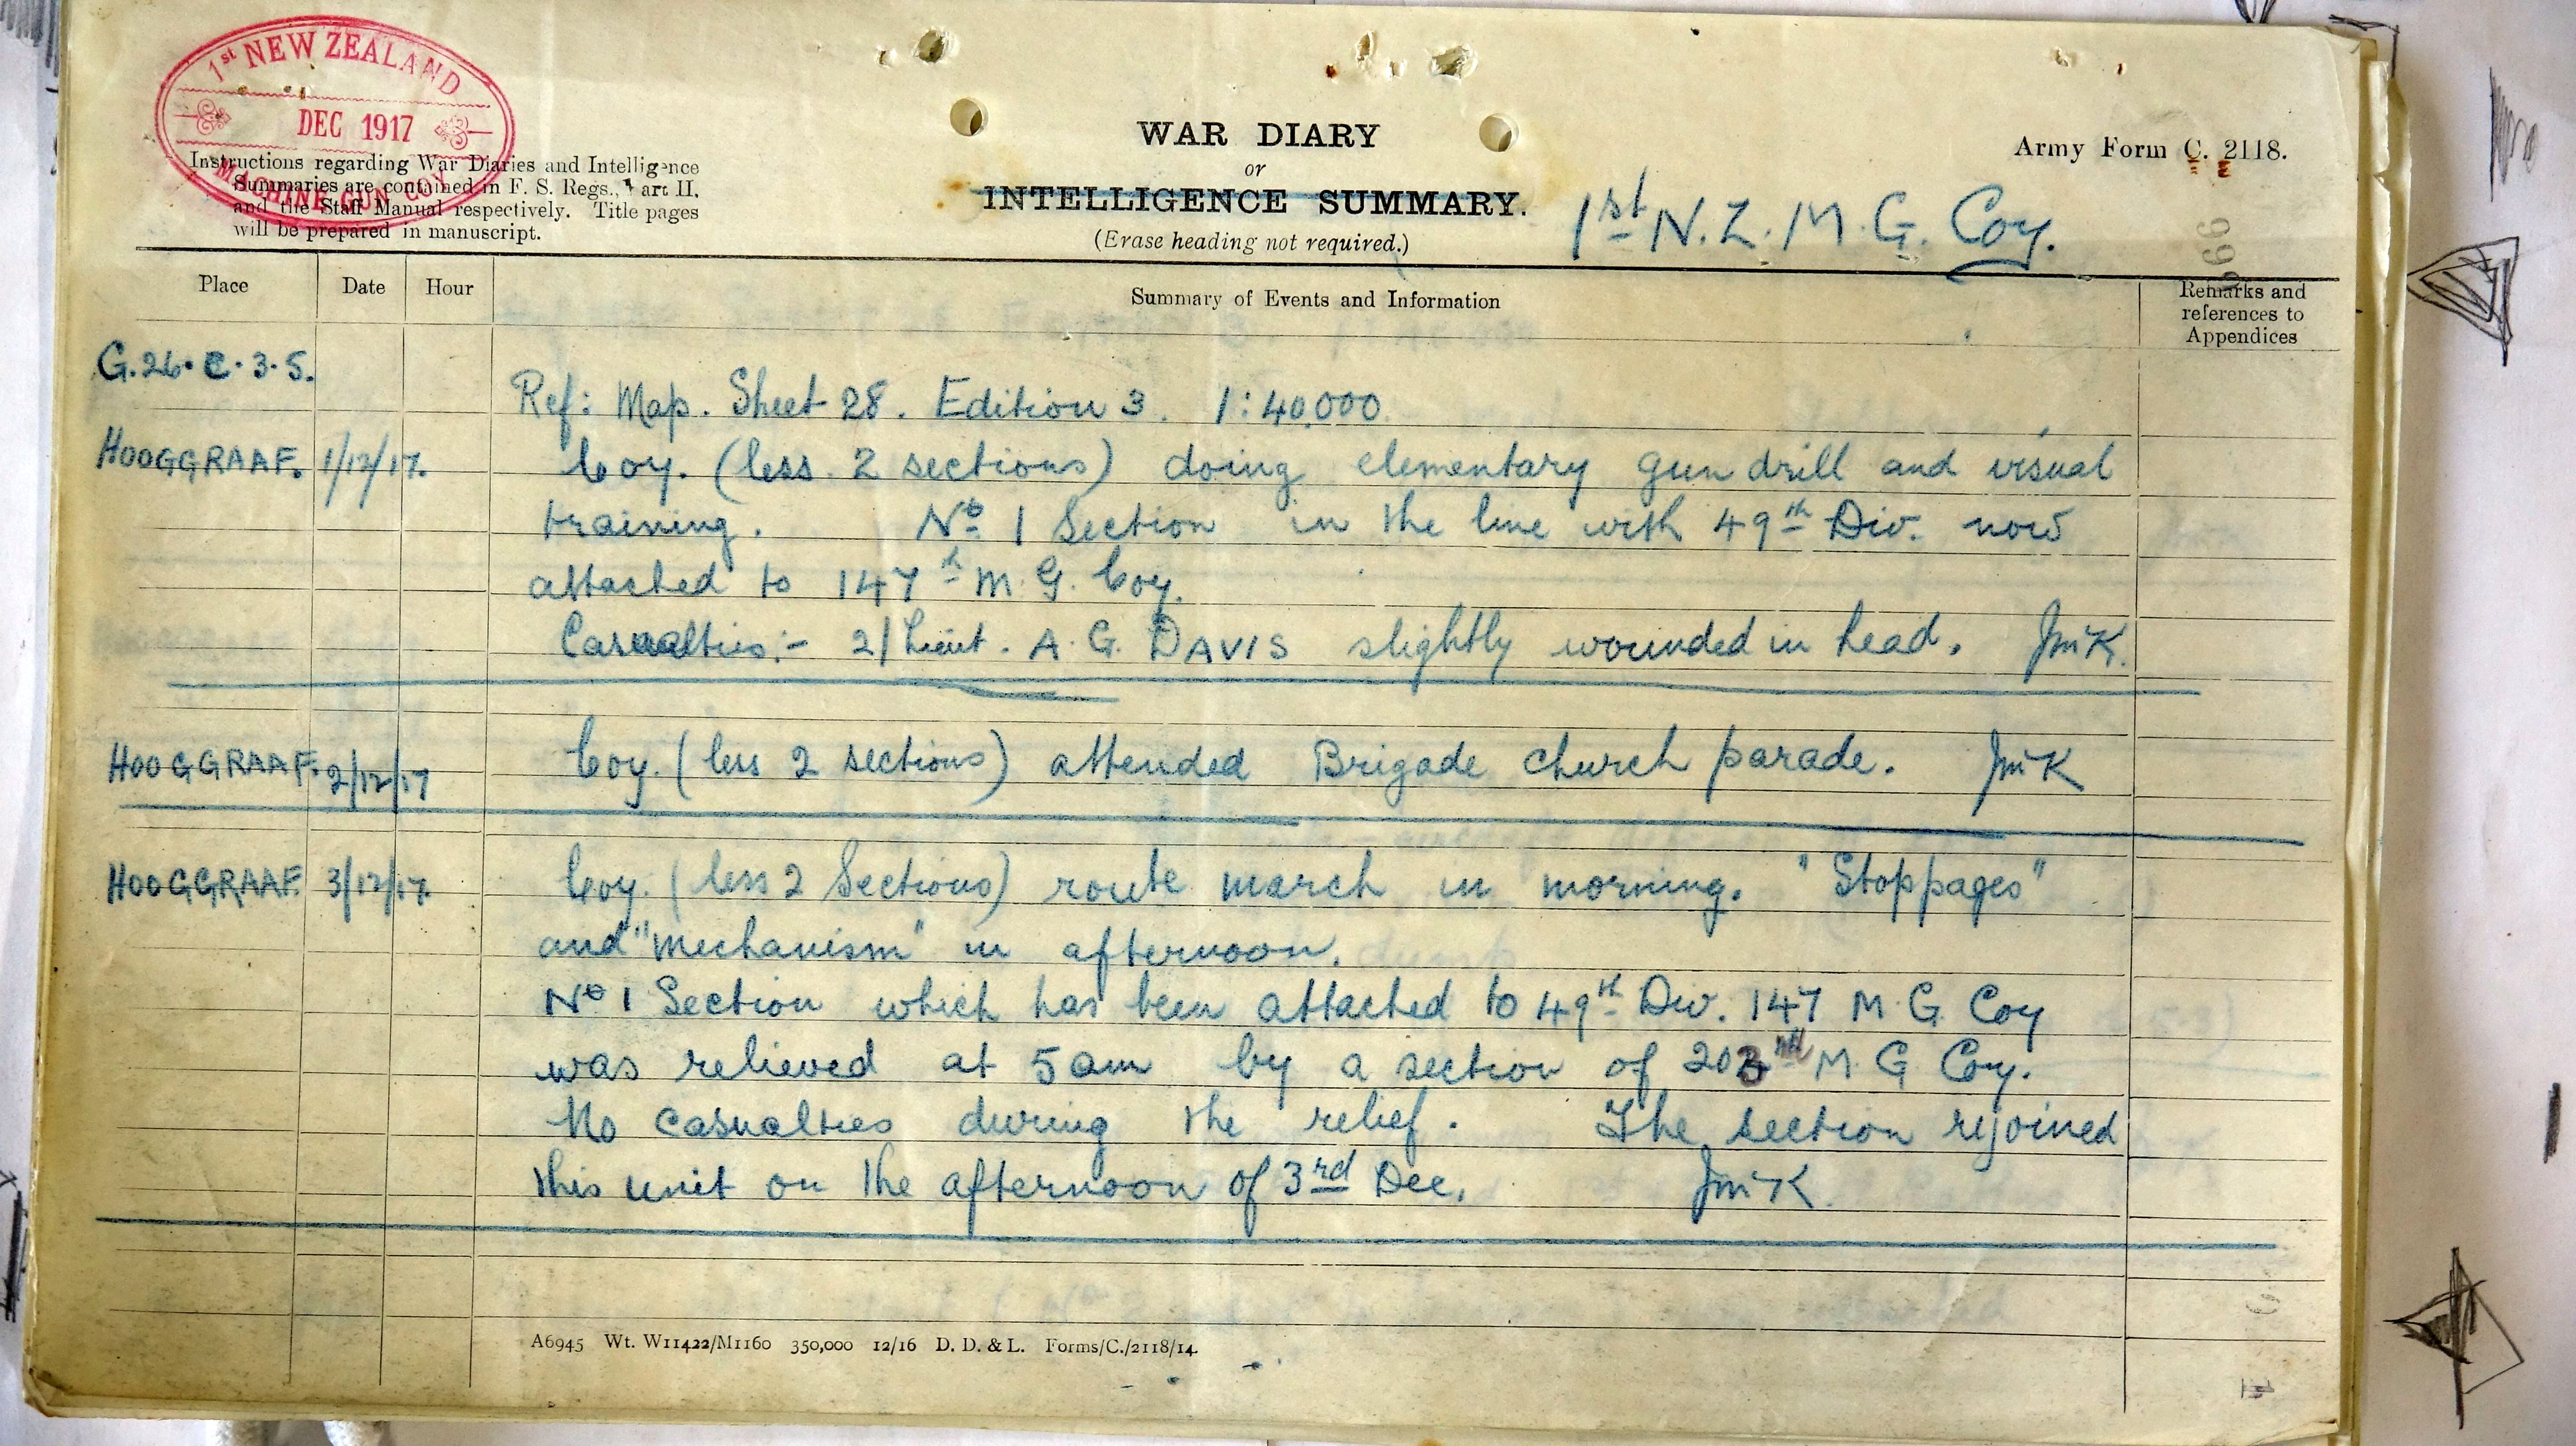 1st NEW ZEALAND
DEC 1917
MACHINE GUN COY
Instructions regarding War Diaries and Intelligence
Summaries are contained in F. S. Regs., Part II.
and the Staff Manual respectively. Title pages
will be prepared in manuscript.
WAR DIARY
or
INTELLIGENCE SUMMARY.
(Erase heading not required.)
Army Form C. 2118.
1st N. Z. M. G. Coy.
Place Date Hour Summary of Events and Information Remarks and
references to
Appendices
G.26.C.3.5.
Ref: Map. Sheet 28. Edition 3. 1:40,000
HOOGGRAAF. 1/12/17. Coy. (less 2 sections) doing elementary gun drill and visual
training. No 1 Section in the line with 49th Div. now
attached to 147th M. G. Coy.
Casualties:- 2/Lieut. A. G. DAVIS slightly wounded in head. JMcK.
HOOGGRAAF. 2/12/17 Coy. (less 2 sections) attended Brigade church parade. JMcK
HOOGGRAAF. 3/12/17. Coy. (less 2 Sections) route march in morning. "Stoppages"
and "Mechanism" in afternoon.
No 1 Section which has been attached to 49th Div. 147 M. G. Coy
was relieved at 5 am by a section of M. G. Coy.
No casualties during the relief. The section rejoined
this unit on the afternoon of 3rd Dec. JMcK.
A6945 Wt. W11422/M1160 350,000 12/16 D. D. & L. Forms/C./2118/14.